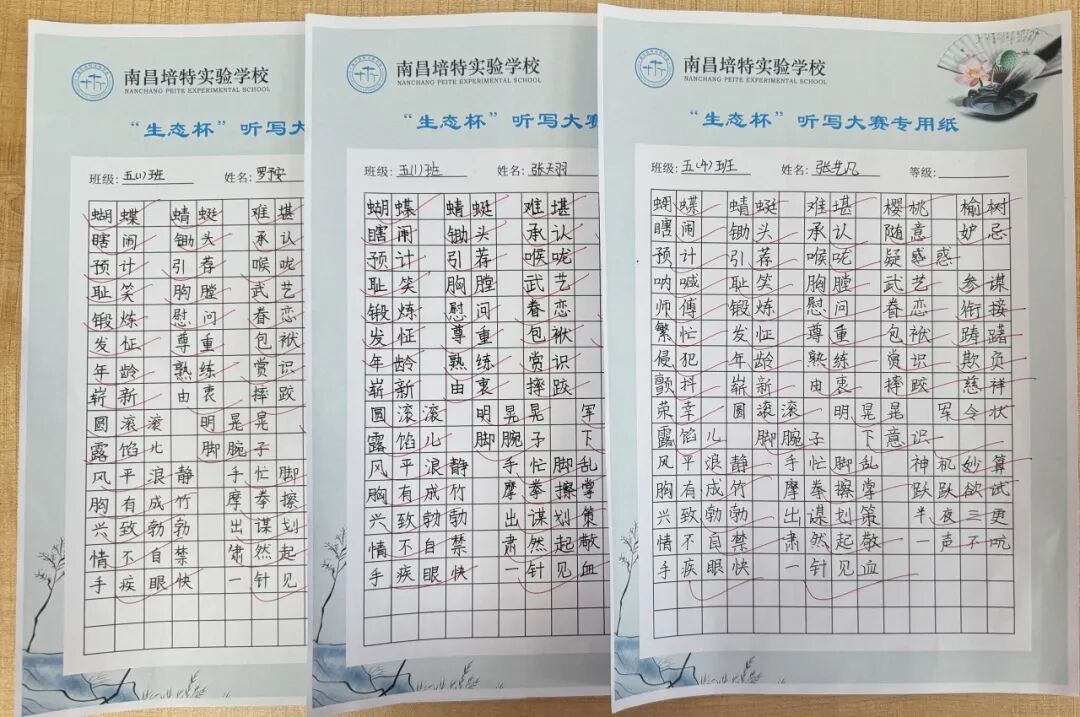 南昌培特实验学校
NANCHANG PEITE EXPERIMENTAL SCHOOL
“生态杯”听写大
班级：五(1)班 姓名：罗
蝴蝶 蜻蜓 难堪
瞎闹 锄头 承认
预计 引荐 喉咙
耻笑 胸膛 武艺
锻炼 慰问 眷恋
发怔 尊重 包袱
年龄 熟练 赏识
崭新 由衷 摔跤
圆滚滚 明晃晃
露馅儿 脚腕子
风平浪静 手忙脚
胸有成竹 摩拳擦
兴致勃勃 出谋划
情不自禁 肃然起
手疾眼快 一针见
南昌培特实验学校
NANCHANG PEITE EXPERIMENTAL SCHOOL
“生态杯”听写大赛
班级：五(1)班 姓名：张天羽
蝴蝶 蜻蜓 难堪
瞎闹 锄头 承认
预计 引荐 喉咙
耻笑 胸膛 武艺
锻炼 慰问 眷恋
发怔 尊重 包袱
年龄 熟练 赏识
崭新 由衷 摔跤
圆滚滚 明晃晃 军
露馅儿 脚腕子 下
风平浪静 手忙脚乱
胸有成竹 摩拳擦掌
兴致勃勃 出谋划策
情不自禁 肃然起敬
手疾眼快 一针见血
南昌培特实验学校
NANCHANG PEITE EXPERIMENTAL SCHOOL
“生态杯”听写大赛专用纸
班级：五(4)班 姓名：张艺凡 等级：
蝴蝶 蜻蜓 难堪 樱桃 榆树
瞎闹 锄头 承认 随意 妒忌
预计 引荐 喉咙 疑惑惑
呐喊 耻笑 胸膛 武艺 参谋
师傅 锻炼 慰问 眷恋 衔接
繁忙 发怔 尊重 包袱 踌躇
侵犯 年龄 熟练 赏识 欺负
颤抖 崭新 由衷 摔跤 慈祥
荣幸 圆滚滚 明晃晃 军令状
露馅儿 脚腕子 下意识
风平浪静 手忙脚乱 神机妙算
胸有成竹 摩拳擦掌 跃跃欲试
兴致勃勃 出谋划策 半夜三更
情不自禁 肃然起敬 一声不吭
手疾眼快 一针见血